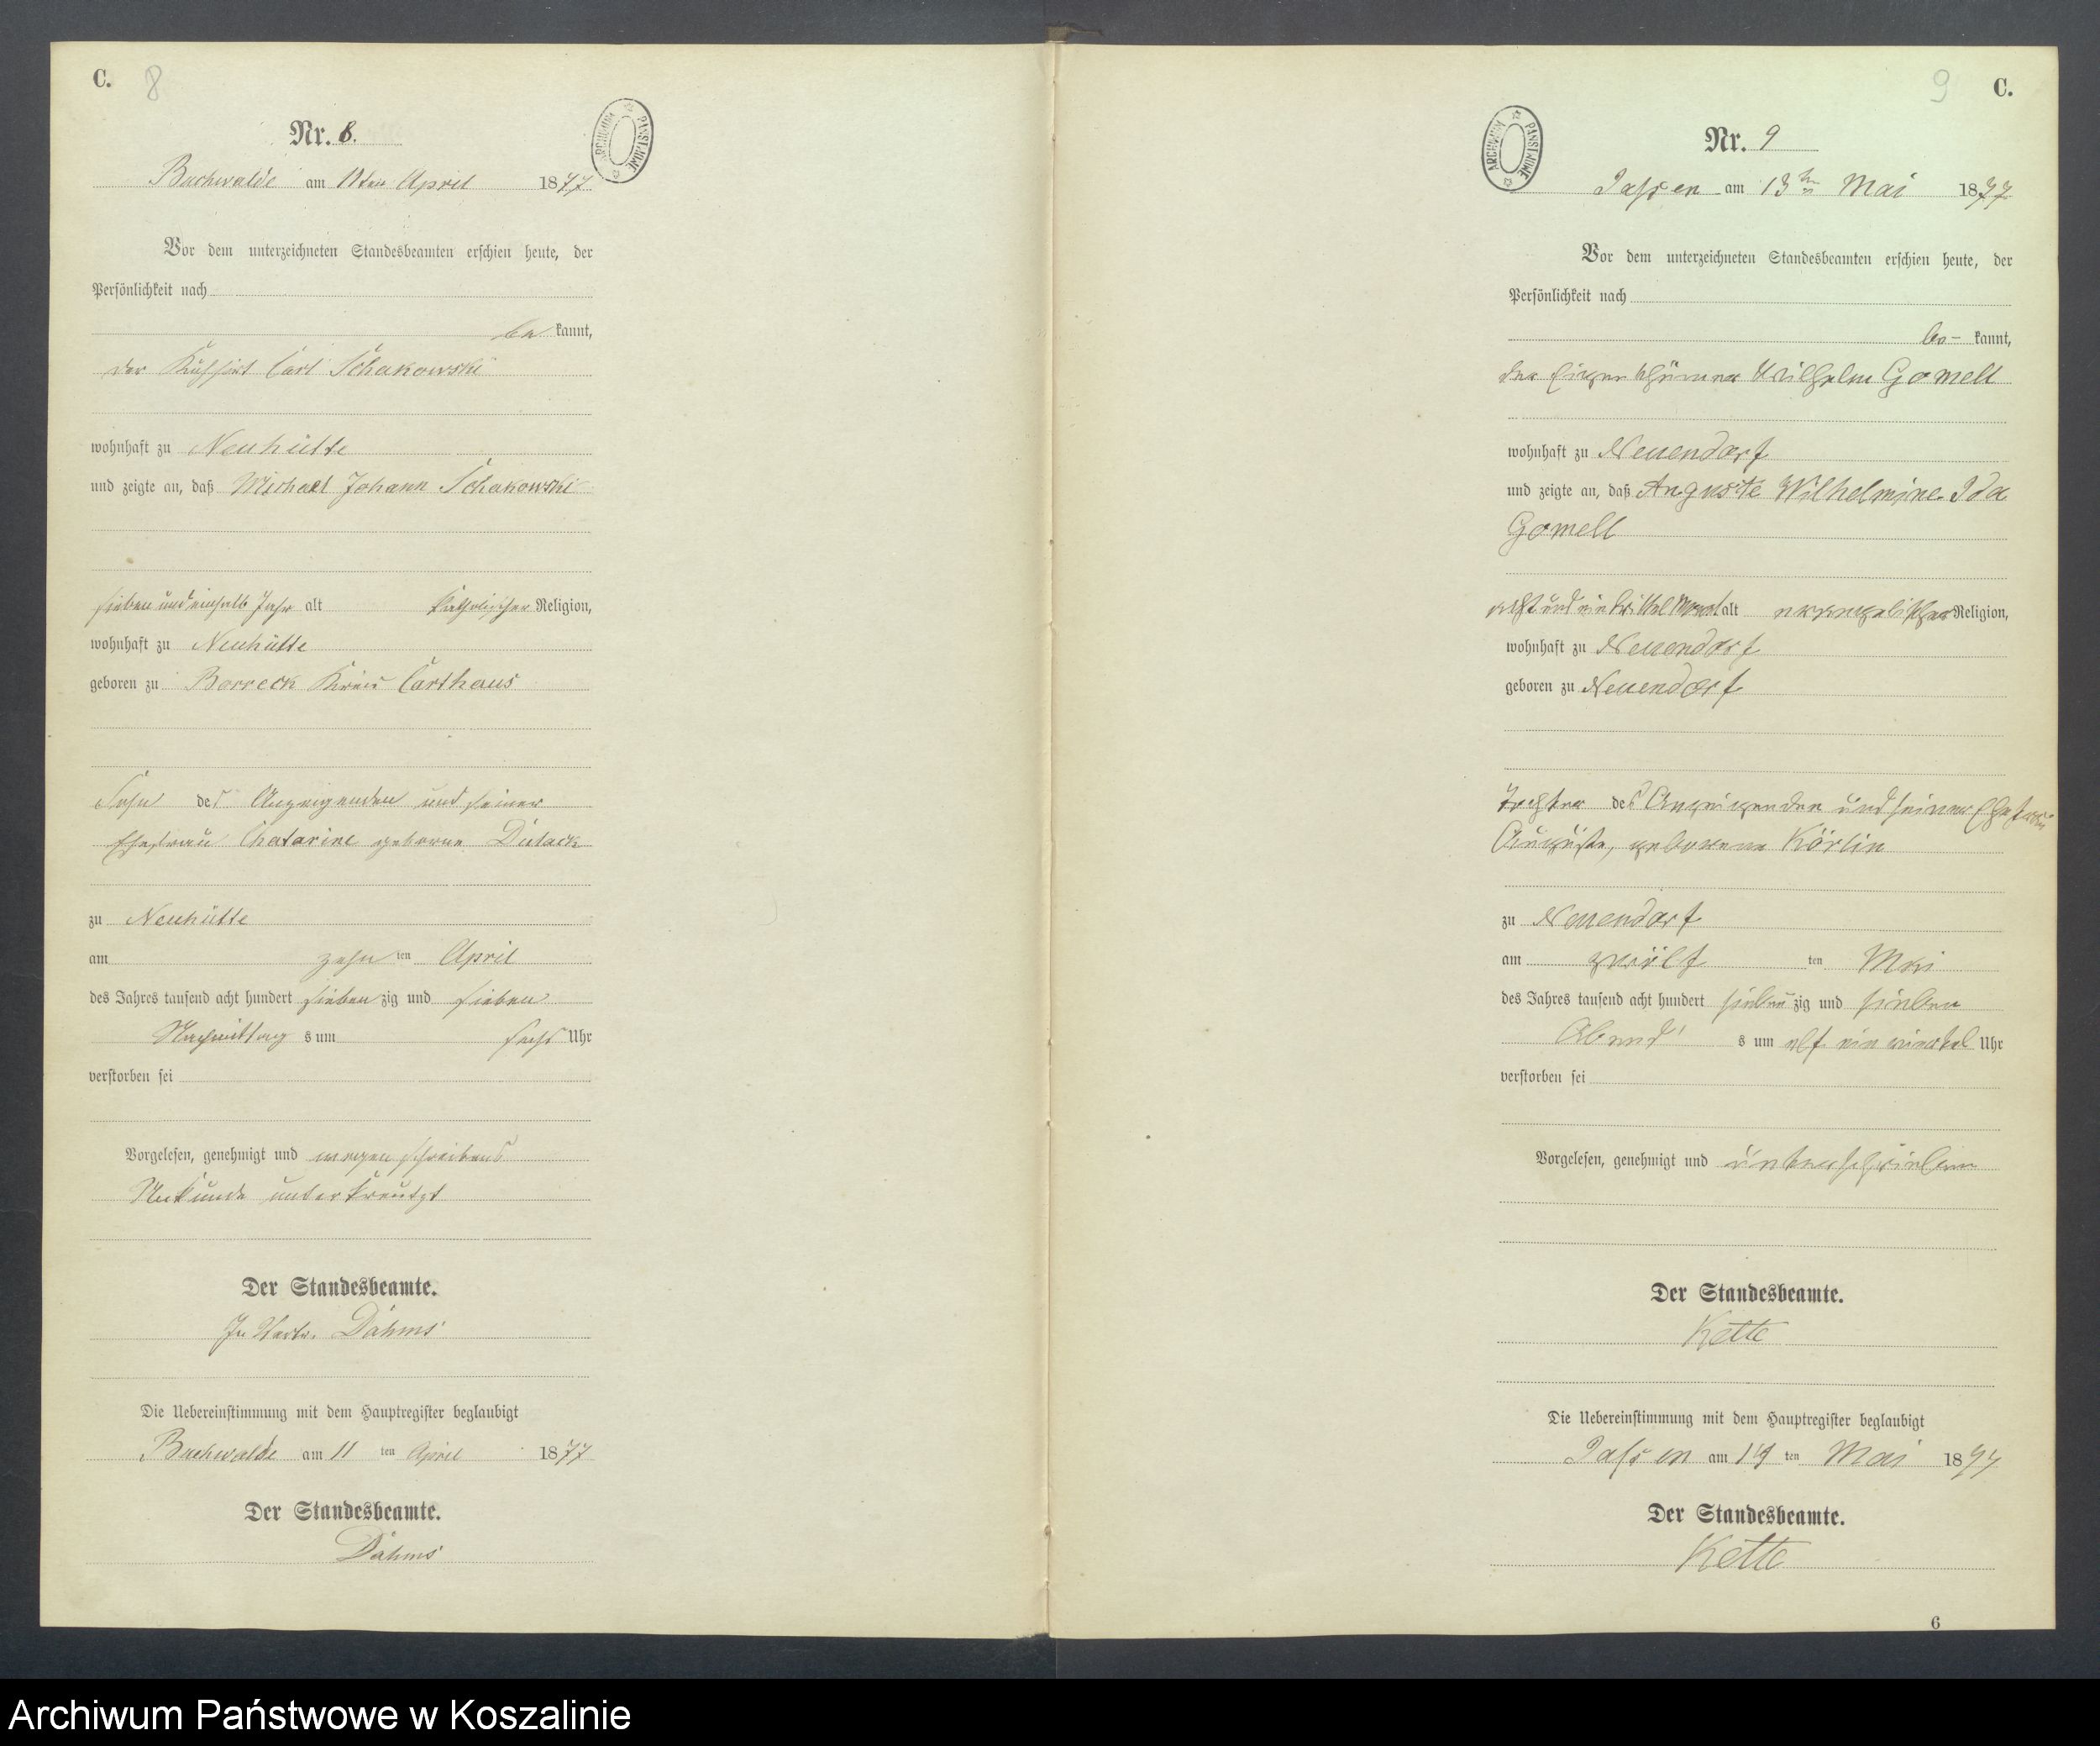 C. 8
Nr. 8.
Buchwalde am 11ten April 1877
Vor dem unterzeichneten Standesbeamten erschien heute, der
Persönlichkeit nach
be kannt,
der Kuhhirt Carl Schakowski
wohnhaft zu Neuhütte
und zeigte an, daß Michael Johann Schakowski
sieben und einhalb Jahr alt katholischer Religion,
wohnhaft zu Neuhütte
geboren zu Borreck Kreis Carthaus
Sohn des Anzeigenden und seiner
Ehefrau Chatarine geborne
zu Neuhütte
am zehn ten April
des Jahres tausend acht hundert sieben zig und sieben
Nachmittag s um sechs Uhr
verstorben sei
Vorgelesen, genehmigt und wegen schreibens
Unkunde unterkreutzt
Der Standesbeamte.
In Vertr. Dahms
Die Uebereinstimmung mit dem Hauptregister beglaubigt
Buchwalde am 11 ten April 1877
Der Standesbeamte.
Dahms
ARCHIWUM PAŃSTWOWE
9 C.
Nr. 9
Jassen am 13ten Mai 1877
Vor dem unterzeichneten Standesbeamten erschien heute, der
Persönlichkeit nach
be- kannt,
der Eigenthümer Wilhelm Gomell
wohnhaft zu Neuendorf
und zeigte an, daß Auguste Wilhelmine Ida
Gomell
acht und ein drittel Monat alt evangelischer Religion,
wohnhaft zu Neuendorf
geboren zu Neuendorf
Tochter des Anzeigenden und seiner Ehefrau
Auguste, geborene Körlin
zu Neuendorf
am zwölf ten Mai
des Jahres tausend acht hundert sieben zig und sieben
Abend s um elf ein viertel Uhr
verstorben sei
Vorgelesen, genehmigt und unterschrieben
Der Standesbeamte.
Kette
Die Uebereinstimmung mit dem Hauptregister beglaubigt
Jassen am 14 ten Mai 1877
Der Standesbeamte.
Kette
6
ARCHIWUM PAŃSTWOWE
Archiwum Państwowe w Koszalinie